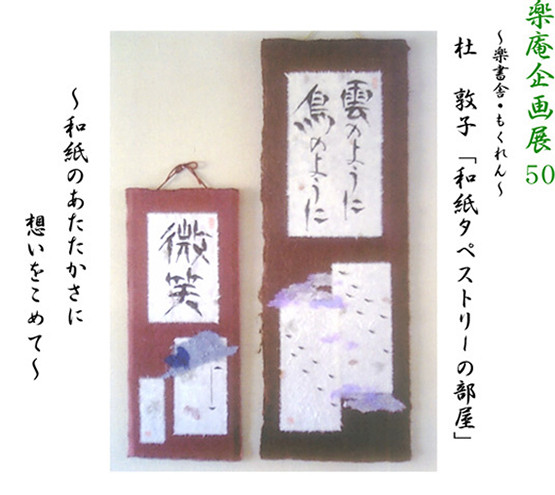 楽庵企画展 50
～楽書舎・もくれん～
杜 敦子「和紙タペストリーの部屋」
雲のように
鳥のように
微笑
～和紙のあたたかさに
想いをこめて～